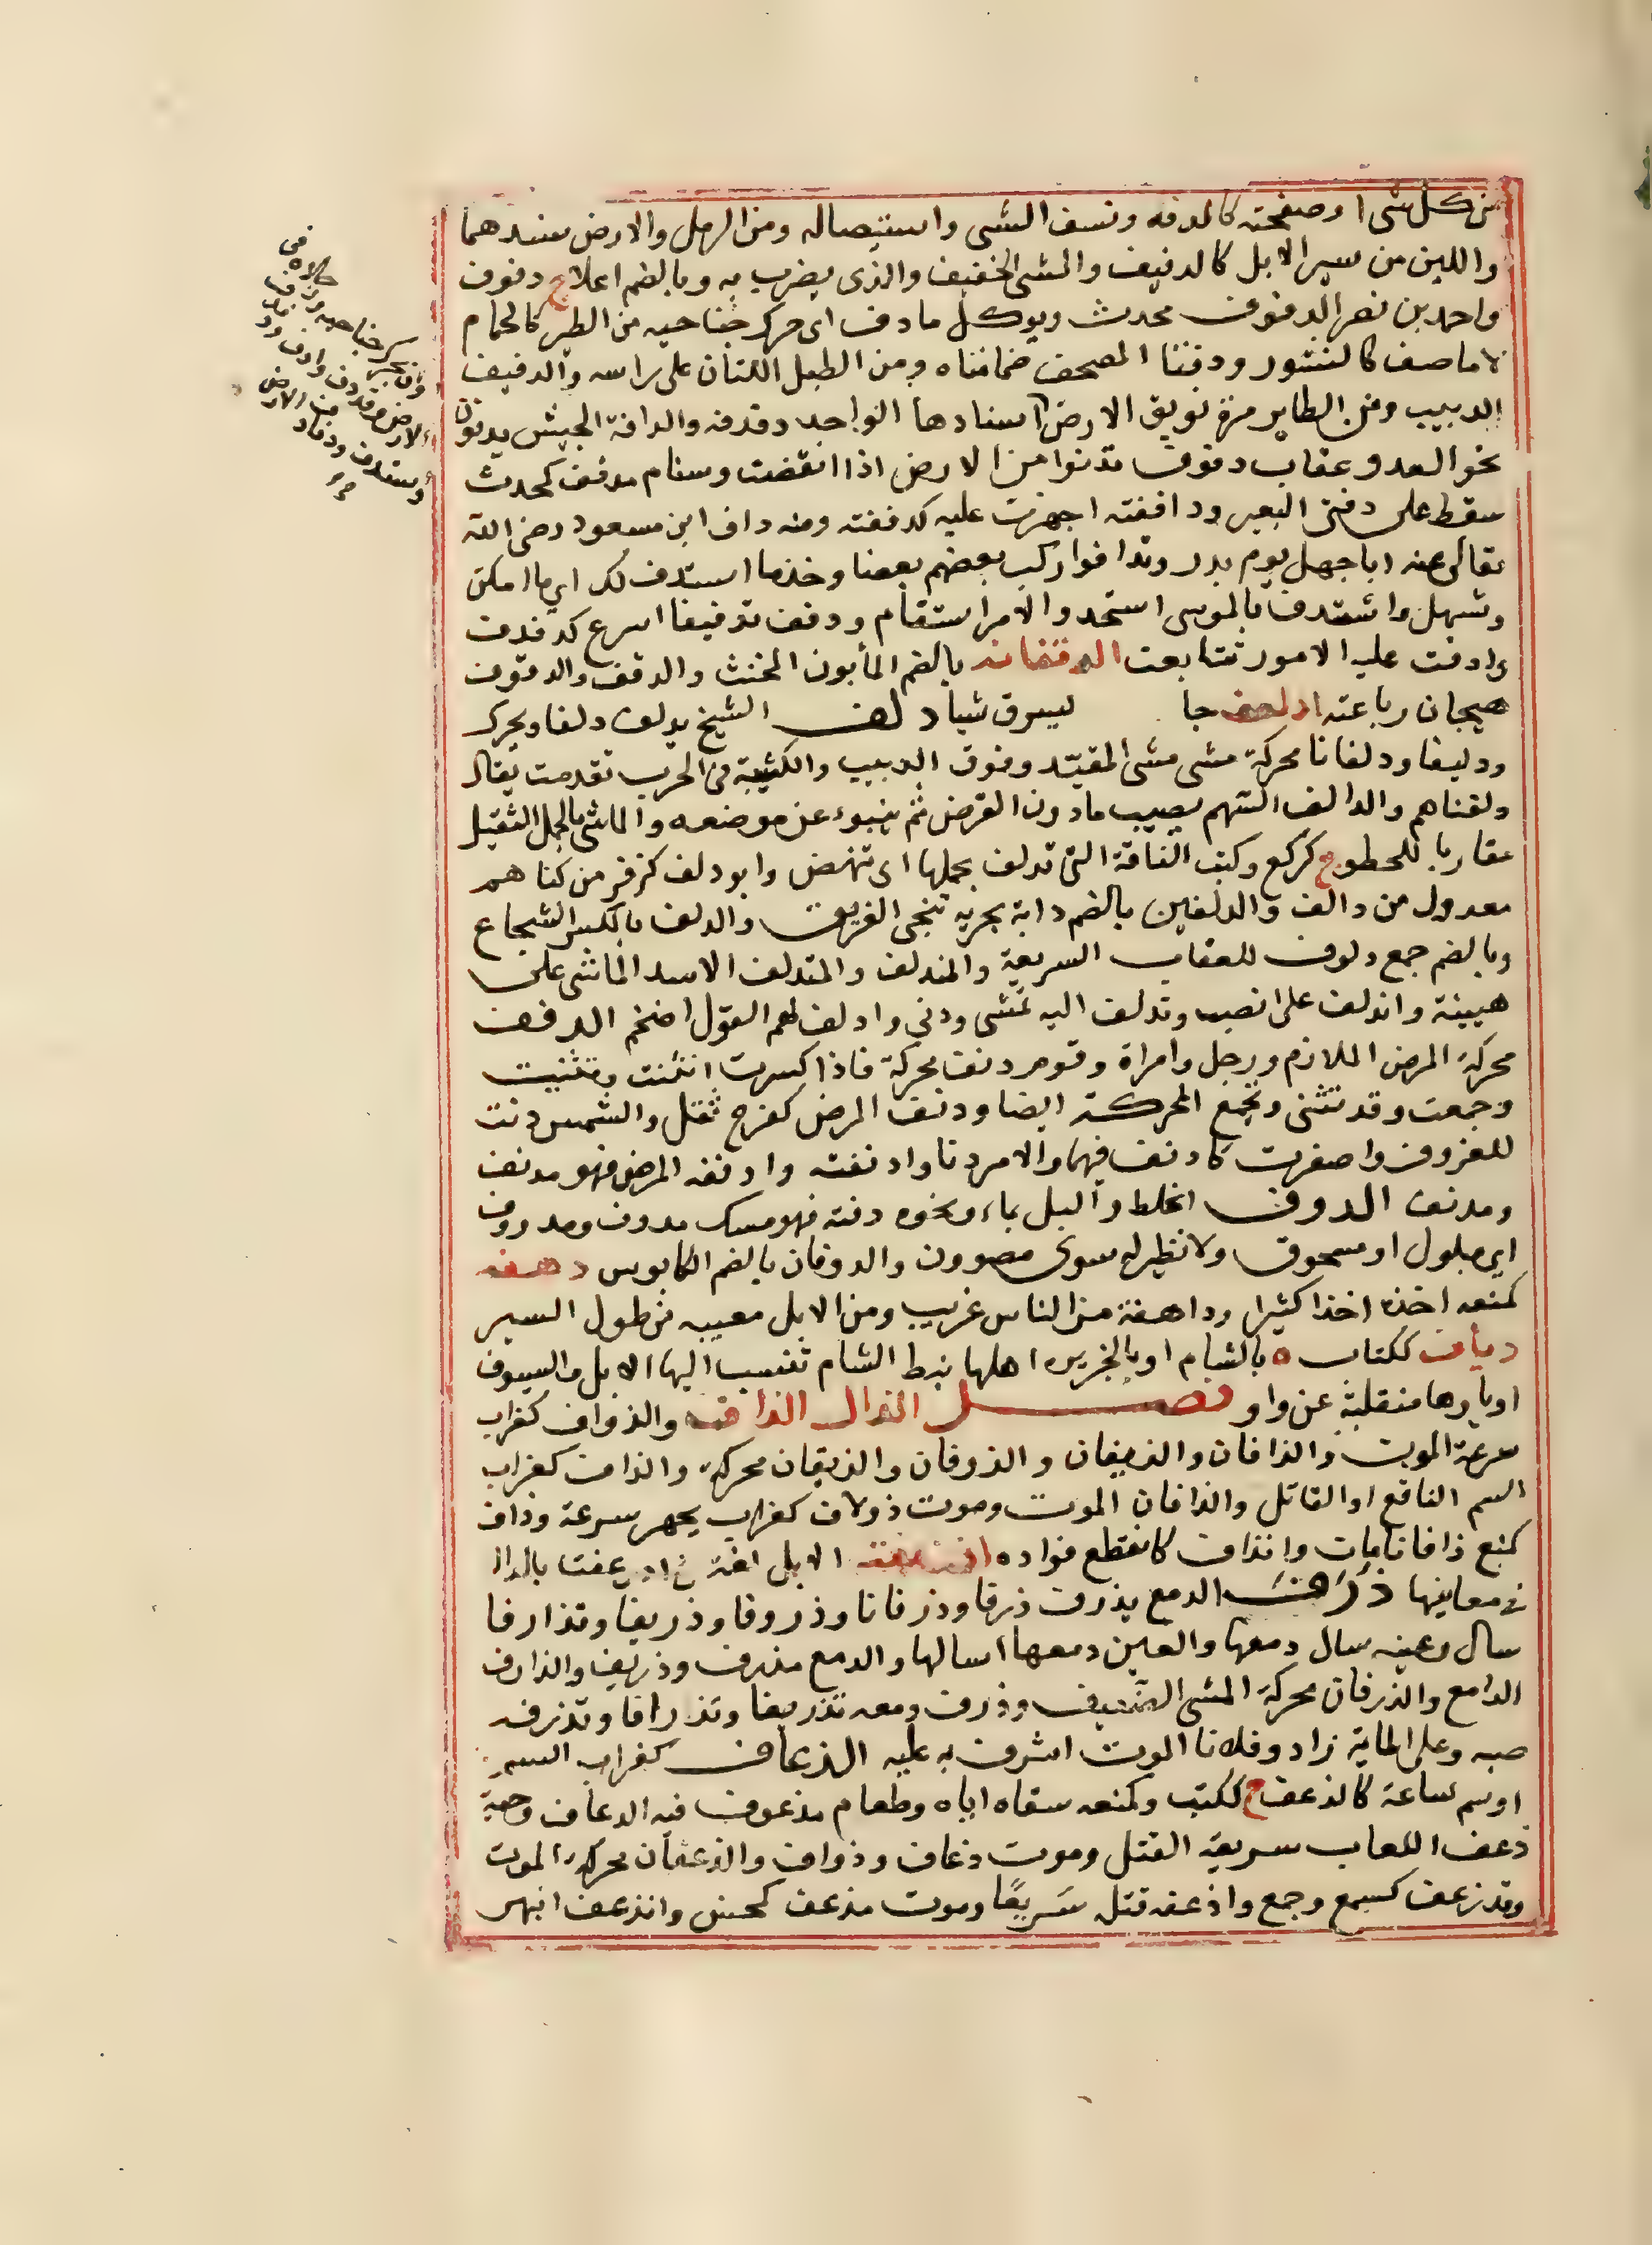 من كل شى او صفحته كالدفه ونسف الشى واستيصاله ومن الرمل والارض سندهما
واللين من سير الابل كالدفيف والمشى الخفيف والذى يضرب به وبالضم اعلا ج دفوف
واحمد بن نصر الدفوفى محدث ويوكل ما دف اى حرك جناحيه من الطير كالحمام
لا ما صف كالنسور ودفتا المصحف ضمامتاه ومن الطبل اللتان على راسه والدفيف
الدبيب ومن الطاير مره فويق الارض اسنادها الواحد دفدفه والدافة الجيش يدفون
نحو العدو وعقاب دفوف تدنوا من الارض اذا انقضت وسنام مدفف كمحدث
سقط على دفتى البعير ودافقته اجهزت عليه كدففته ومنه داف ابن مسعود رضى الله
تعالى عنه ابا جهل يوم بدر وتدافوا ركب بعضهم بعضا وخذ ما استدف لك اى ما امكن
وتسهل واستدف بالموسى استحد والامر استقام ودفف تدفيفا اسرع كدفدف
وادفت عليه الامور تتابعت الدقفانه بالضم المأبون المخنث والدقف والدقوف
هيجان رباعته ادلعف جا ليسرق شيا دلف الشيخ يدلف دلفا ويحرك
ودليفا ودلفانا محركة مشى مشى المقيد وفوق الدبيب والكتيبة فى الحرب تقدمت يقال
دلفناهم والدالف السهم يصيب ما دون الغرض ثم ينبوء عن موضعه والماشى بالحمل الثقيل
مقاربا للخطو ج كركع وكتب الناقة التى تدلف بحملها اى تنهض وابو دلف كزفر من كناهم
معدول من دالف والدلفين بالضم دابة بحريه تنجى الغريق والدلف بالكسر الشجاع
وبالضم جمع دلوف للعقاب السريعة والمندلف والمتدلف الاسد الماشى على
هيينة واندلف على انصب وتدلف اليه تمشى ودنى وادلف لهم القول اضخم الدنف
محركة المرض اللازم ورجل وامراة وقوم دنف محركة فاذا كسرت انثت وثنيت
وجمعت وقد تثنى وتجمع المحركة ايضا ودنف المرض كفرح ثقل والشمس دنت
للغروب واصفرت كادنف فيهما والامر دنا وادنفته وادنفه المرض فهو مدنف
ومدنف الدوف الخلط والبل بماء ونحوه دفته فهو مسك مدوف ومدووف
اى مبلول او مسحوق ولا نظير له سوى مصوون والدوفان بالضم الكابوس دهفه
كمنعه اخذه اخذا كثيرا وداهفة من الناس غريب ومن الابل معيبه من طول السير
دياف ككتاب ه بالشام او بالجزيره اهلها نبط الشام تنسب اليها الابل والسيوف
او ياوها منقلبة عن واو فصل الذال الذاف والذواف كغراب
سرعة الموت والذافان والذيفان والذوفان والذيفان محركه والذاف كغراب
السم الناقع او القاتل والذافان الموت وموت ذولاف كغراب يجهز سرعة وذاف
كمنع ذافانا مات وانذاف كانقطع فواده الابل لغة فى ادرعفت بالدال
فى معانيها ذرف الدمع يذرف ذرفا وذرفانا وذروفا وذريفا وتذارفا
سال وعينه سال دمعها والعين دمعها اسالها والدمع مذرف وذريف والذارف
الدامع والذرفان محركة المشى الضعيف وذرف دمعه تذريفا وتذرافا وتذرفه
صبه وعلى الماية زاد وفلانا الموت اشرف به عليه الذعاف كغراب السم
او سم ساعة كالذعف ج ككتب وكمنعه سقاه اياه وطعام مذعوف فيه الذعاف وحية
ذعف اللعاب سريعة القتل وموت ذعاف وذواف والذعفان محركه الموت
وقد ذعف كسمع وجمع واذعفه قتله سريعا وموت مذعف كمحسن وانذعف انبهر